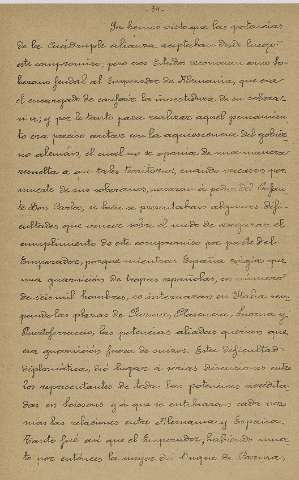 - 34 -
Ya hemos visto que las potencias
de la Cuádruple alianza aceptaban desde luego
este compromiso, pero esos Estados reconocian como so-
berano feudal al Emperador de Alemania, que era
el encargado de conferir la investidura de su sobera-
nia; y por lo tanto para realizar aquel pensamiento
era preciso contar con la aquiescencia del gobier-
no alemán, el cual no se oponia de una manera
resuelta a que tales territorios, cuando vacasen por
muerte de sus soberanos, pasaran á poder del Infan-
te Don Carlos, si bien se presentaban algunas difi-
cultades que vencer sobre el modo de asegurar el
cumplimiento de este compromiso por parte del
Emperador, porque mientras España exigia que
una guarnición de tropas españolas, en número
de seis mil hombres, se internaran en Italia ocu-
pando las plazas de Parma, Plasencia, Liorna y
Puertoferraio, las potencias aliadas querian que
esa guarnición fuera de suizos. Esta dificultad
diplomática, dió lugar á varias discusiones entre
los representantes de todas las potencias acredita-
das en Soissons y á que se entibiaran cada vez
mas las relaciones entre Alemania y España.
Tanto fué asi que el Emperador, habiendo muer-
to por entónces la mayor del Duque de Parma,